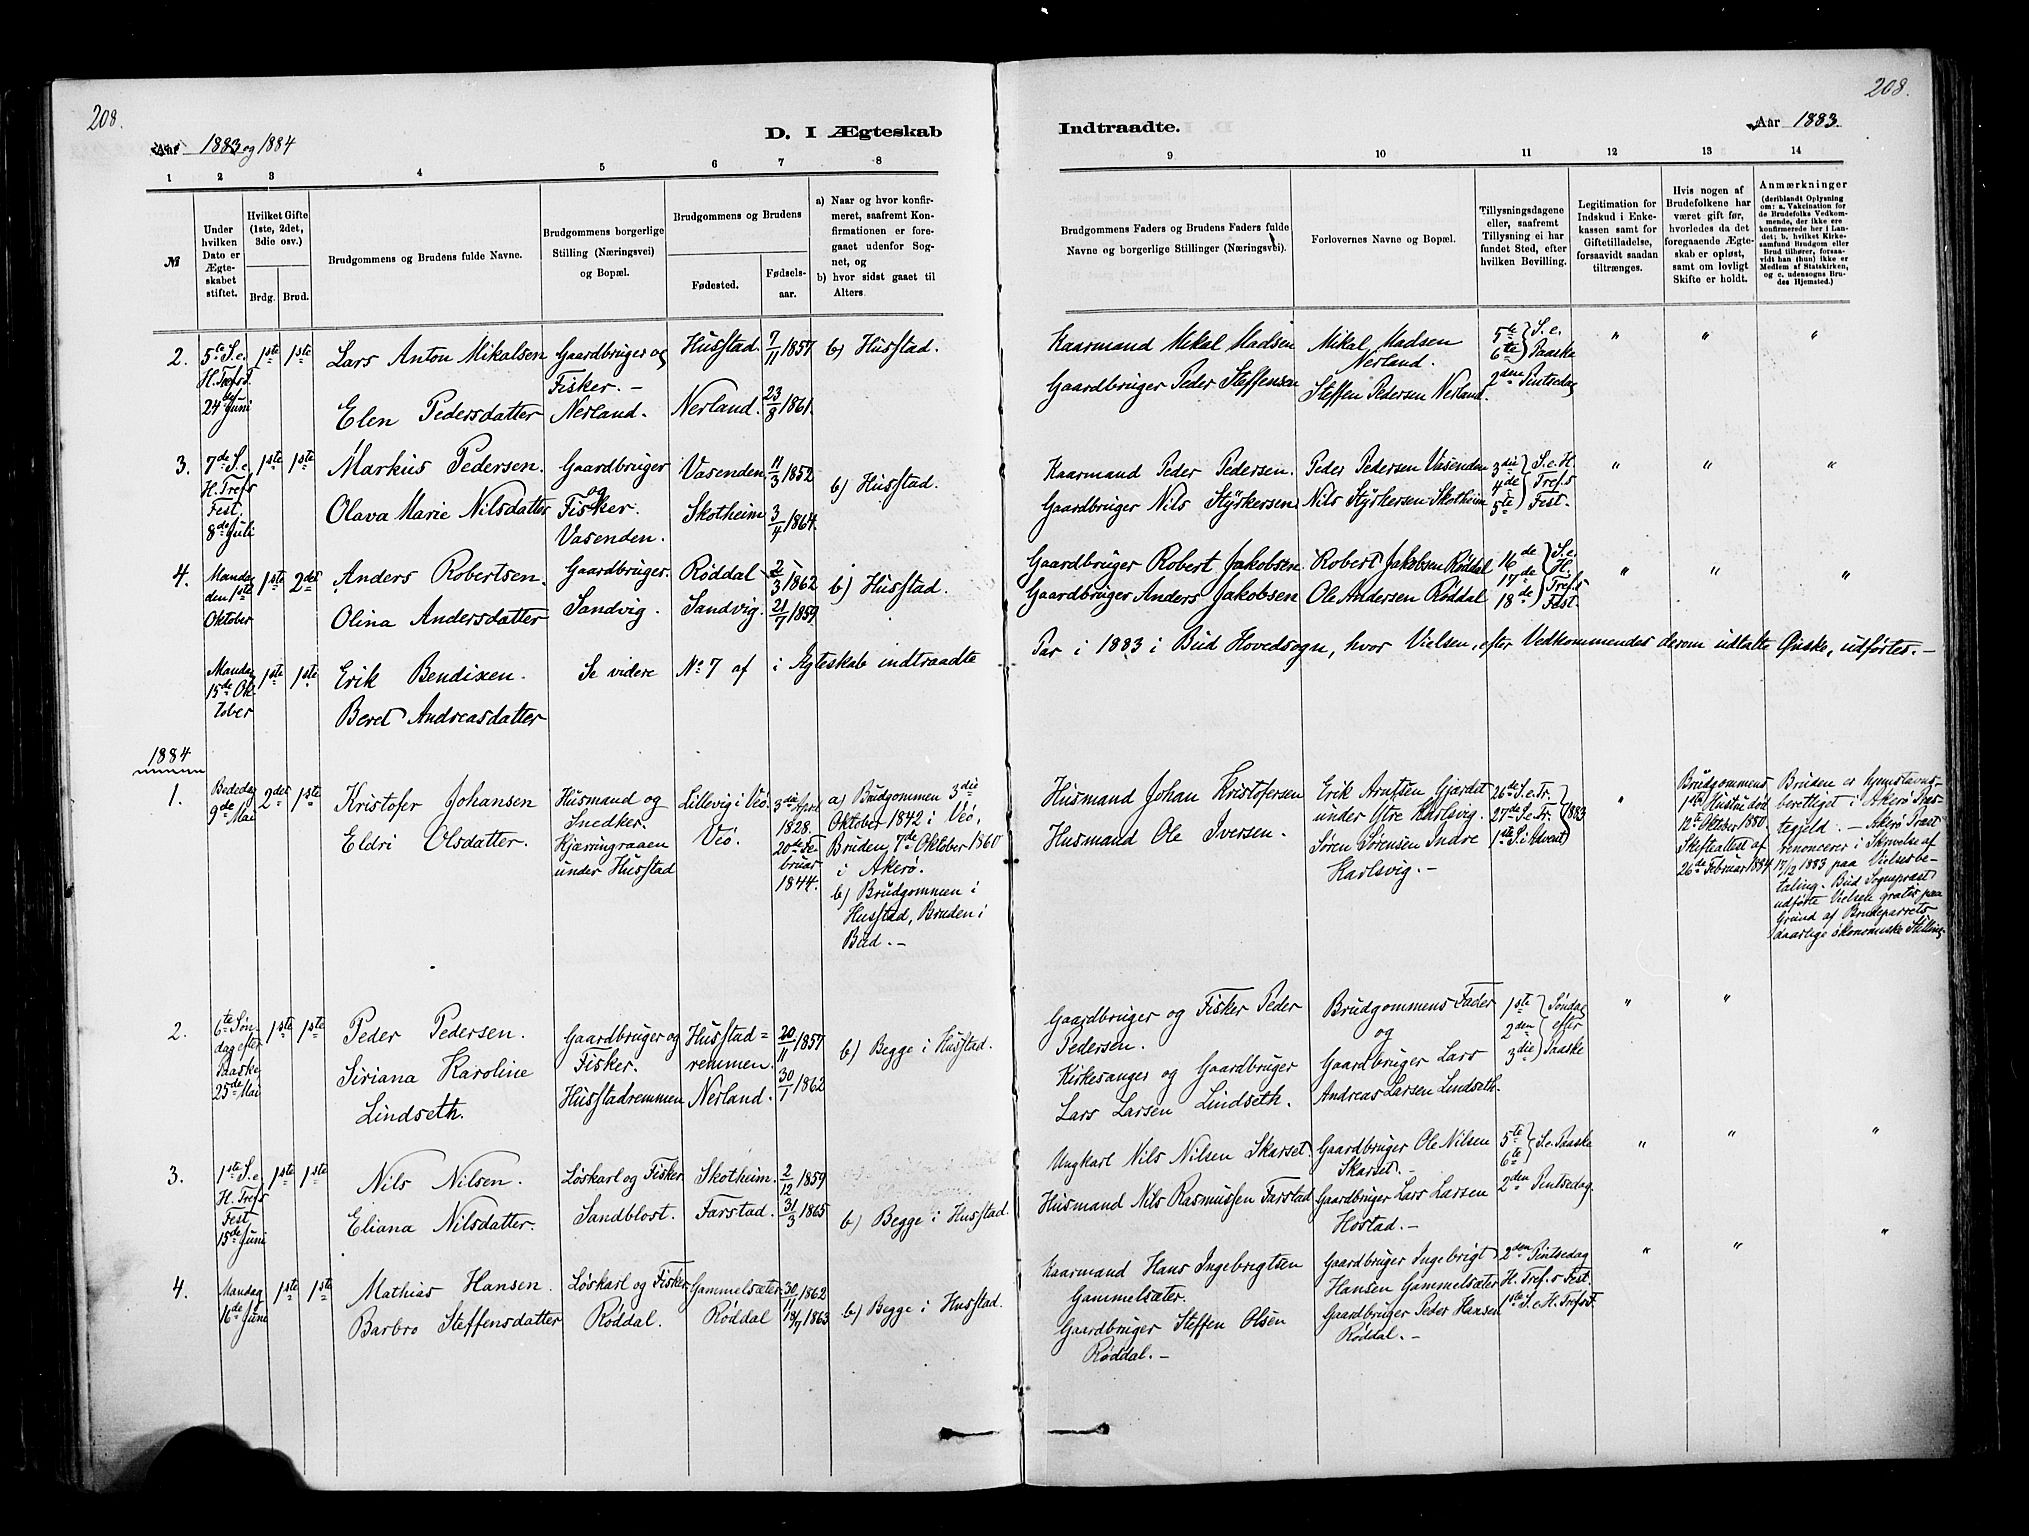 208.
Aar 1883 og 1884
D. I Ægteskab
1 2 3 4 5 6 7 8
№
Under hvilken Dato er Ægteskabet stiftet.
Hvilket Gifte (1ste, 2det, 3die osv.)
Brdg. Brud.
Brudgommens og Brudens fulde Navne.
Brudgommens borgerlige Stilling (Næringsvei) og Bopæl.
Brudgommens og Brudens
Fødested.
Fødselsaar.
a) Naar og hvor konfirmeret, saafremt Konfirmationen er foregaaet udenfor Sognet, og
b) hvor sidst gaaet til Alters.
2. 5te S. e. H. Trefs F. 24de Juni
1ste 1ste
Lars Anton Mikalsen
Elen Pedersdatter
Gaardbruger og Fisker. – Nerland.
Husstad. 7/11 1857
Nerland. 23/8 1861.
b) Husstad.
3. 7de S. e. H. Trefs Fest. 8de Juli
1ste 1ste
Markus Pedersen.
Olava Marie Nilsdatter
Gaardbruger og Fisker. Vasenden.
Vasenden. 11/3 1852
Skotheim. 3/4 1864.
b) Husstad.
4. Mandag den 1ste Oktober
1ste 2det
Anders Robertsen.
Olina Andersdatter
Gaardbruger. Sandvig.
Røddal. 2/3 1862
Sandvig. 21/7 1859
b) Husstad.
Mandag 15de Oktober
1ste 1ste
Erik Bendixen.
Beret Andreasdatter
Se videre No 7 af i Ægteskab indtraadte
1884
1. Bededag 9de Mai
2det 1ste
Kristofer Johansen
Eldri Olsdatter.
Husmand og Snedker. Kjæringraaen under Husstad
Lillevig i Veø. 3die April 1828.
Veø. 20de Februar 1844.
a) Brudgommen 3die Oktober 1842 i Veø, Bruden 7de Oktober 1860 i Akerø.
b) Brudgommen i Husstad, Bruden i Bud. –
2. 6te Søndag efter Paaske 25de Mai
1ste 1ste
Peder Pedersen.
Siriana Karoline Lindseth.
Gaardbruger og Fisker. Husstadremmen
Husstad=remmen. 20/11 1857
Nerland. 30/1 1862
b) Begge i Husstad.
3. 1ste S. e. H. Trefs Fest, 15de Juni
1ste 1ste
Nils Nilsen.
Eliana Nilsdatter.
Løskarl og Fisker Sandblost.
Skotheim. 2/12 1859
Farstad. 31/3 1865
b) Begge i Husstad.
4. Mandag 16de Juni
1ste 1ste
Mathias Hansen.
Barbro Steffensdatter
Løskarl og Fisker Røddal.
Gammelsæter. 30/11 1862
Røddal 18/7 1863
b) Begge i Husstad.
208.
Indtraadte.
Aar 1883.
9 10 11 12 13 14
Brudgommens Faders og Brudens Faders fulde Navne og borgerlige Stillinger (Næringsvei).
Forlovernes Navne og Bopæl.
Tillysningsdagene eller, saafremt Tillysning ei har fundet Sted, efter hvilken Bevilling.
Legitimation for Indskud i Enkekassen samt for Giftetilladelse, forsaavidt saadan tiltrænges.
Hvis nogen af Brudefolkene har været gift før, hvorledes da det foregaaende Ægteskab er opløst, samt om lovligt Skifte er holdt.
Anmærkninger (deriblandt Oplysning om: a. Vakcination for de Brudefolks Vedkommende, der ikke ere konfirmerede her i Landet; b. hvilket Kirkesamfund Brudgom eller Brud tilhører, forsaavidt han (hun) ikke er Medlem af Statskirken, og c. udensogns Brudes Hjemsted.)
Kaarmand Mikal Madsen
Gaardbruger Peder Steffensen
Mikal Madsen Nerland.
Steffen Pedersen Nerland.
5te 6te } S. e. Paaske 2den Pintsedag
" " "
Kaarmand Peder Pedersen.
Gaardbruger Nils Styrkersen.
Peder Pedersen Vasenden
Nils Styrkersen Skotheim
3die 4de 5te } S. e. H. Trefs Fest.
" " "
Gaardbruger Robert Jakobsen.
Gaardbruger Anders Jakobsen
Robert Jakobsen Røddal
Ole Andersen Røddal
16de 17de 18de } S. e. H. Trefs Fest.
" " "
Par i 1883 i Bud Hovedsogn, hvor Vielsen, efter Vedkommendes derom udtalte Ønske, udførtes. –
Husmand Johan Kristofersen
Husmand Ole Iversen.
Erik Arntsen Gjerdet under Ytre Karlsvig.
Søren Sørensen Indre Karlsvig. –
26de S. e. Tr. 27de S. e. Tr. 1ste S. i Advent } 1883
"
Brudgommens 1ste Hustru død 12te Oktober 1880. Skifteattest af 26de Februar 1884
Bruden er hjemstavnsberettiget i Akerø Præstegjeld. – Akerø Præst renoncerer i Skrivelse af 17/12 1883 paa Vielsesbetaling. Bud Sognepræst udførte Vielsen gratis paa Grund af Brudeparrets daarlige økonomiske Stilling.
Gaardbruger og Fisker Peder Pedersen.
Kirkesanger og Gaardbruger Lars Larsen Lindseth.
Brudgommens Fader
og
Gaardbruger Lars Andreas Larsen Lindseth.
1ste 2den 3die } Søndag efter Paaske
" "
Ungkarl Nils Nilsen Skarset.
Husmand Nils Rasmussen Farstad
Gaardbruger Ole Nilsen Skarset. –
Gaardbruger Lars Larsen Hostad. –
5te 6te } S. e. Paaske 2den Pintsedag.
" " "
Kaarmand Hans Ingebrigtsen Gammelsæter.
Gaardbruger Steffen Olsen Røddal. –
Gaardbruger Ingebrigt Hansen Gammelsæter
Gaardbruger Peder Hansen Røddal. –
2den Pintsedag H. Tref.s Fest. 1ste S. e. H. Trefs F.
" " "